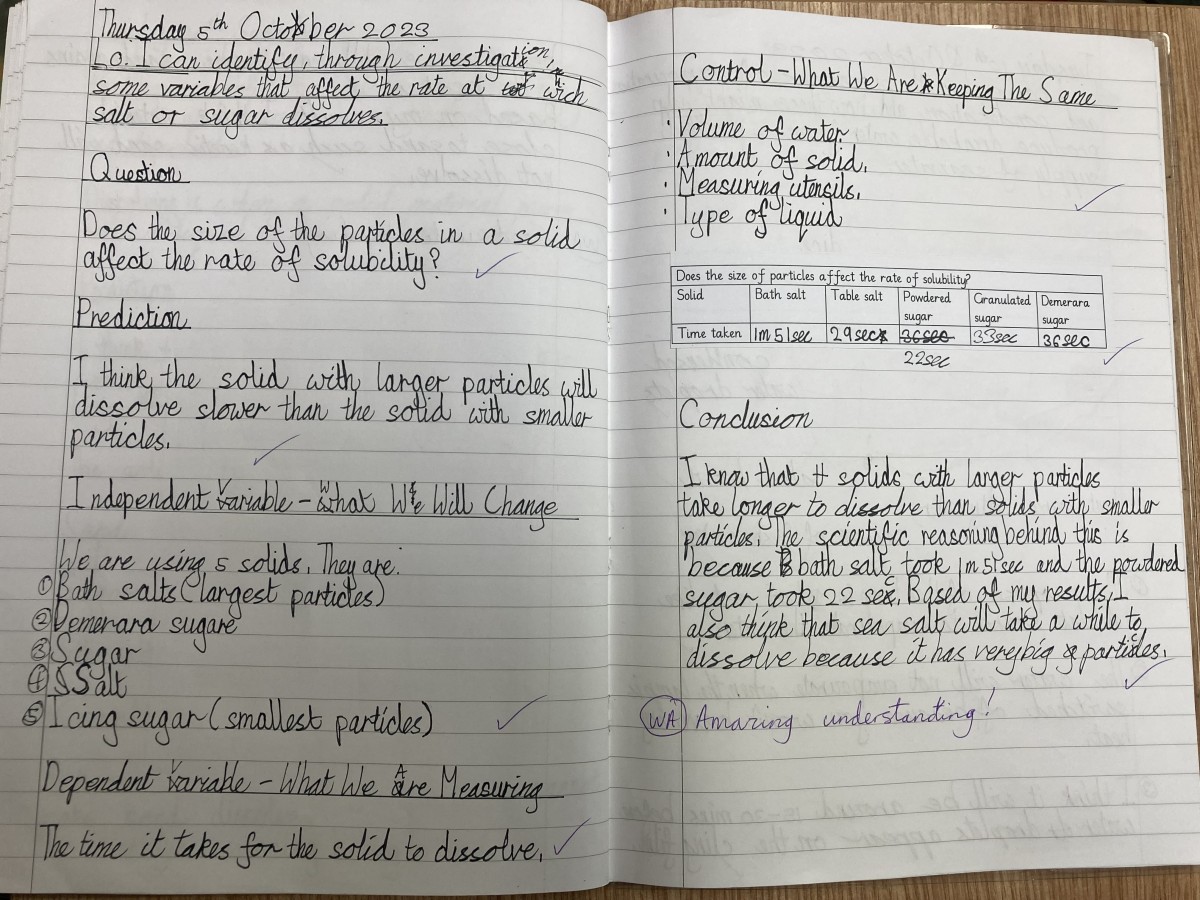 Thursday 5th October 2023
Lo. I can identify, through investigation,
some variables that affect the rate at wich
salt or sugar dissolves.
Question
Does the size of the particles in a solid
affect the rate of solubility?
Prediction
I think the solid with larger particles will
dissolve slower than the solid with smaller
particles.
Independent Variable - What We Will Change
We are using 5 solids. They are:
① Bath salts (largest particles)
② Demerara sugare
③ Sugar
④ SSalt
⑤ Icing sugar (smallest particles)
Dependent Variable - What We Are Measuring
The time it takes for the solid to dissolve.
Control - What We Are Keeping The Same
· Volume of water.
· Amount of solid.
· Measuring utensils.
· Type of liquid
Does the size of particles affect the rate of solubility?
Solid Bath salt Table salt Powdered sugar Granulated sugar Demerara sugar
Time taken 1m 51sec 29sec 36sec 33sec 36sec
22sec
Conclusion
I know that solids with larger particles
take longer to dissolve than solids with smaller
particles. The scientific reasoning behind this is
because bath salt took 1m 51sec and the powdered
sugar took 22 sec. Based of my results, I
also think that sea salt will take a while to
dissolve because it has very big particles.
WA Amazing understanding!